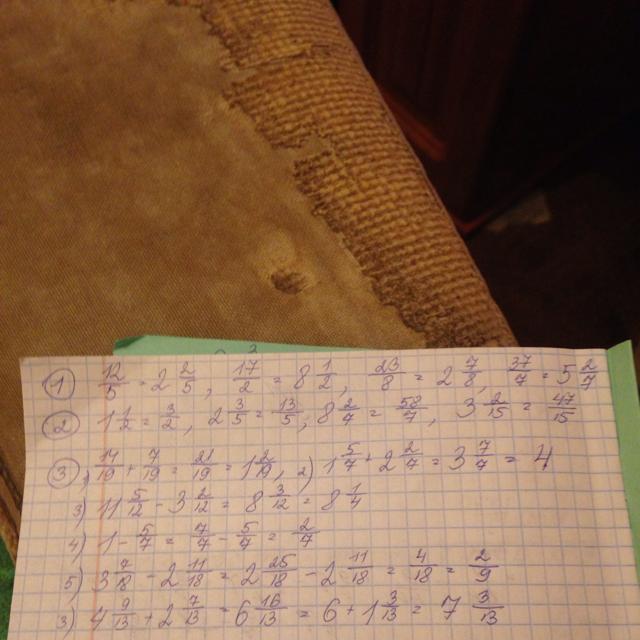 ① 12/5 = 2 2/5, 17/2 = 8 1/2, 23/8 = 2 7/8, 37/7 = 5 2/7
② 1 1/2 = 3/2, 2 3/5 = 13/5, 8 2/7 = 58/7, 3 2/15 = 47/15
③ 14/19 + 7/19 = 21/19 = 1 2/19, 2) 1 5/7 + 2 2/7 = 3 7/7 = 4
3) 11 5/12 - 3 2/12 = 8 3/12 = 8 1/4
4) 1 - 5/7 = 7/7 - 5/7 = 2/7
5) 3 7/18 - 2 11/18 = 2 25/18 - 2 11/18 = 4/18 = 2/9
3) 4 9/13 + 2 7/13 = 6 16/13 = 6 + 1 3/13 = 7 3/13